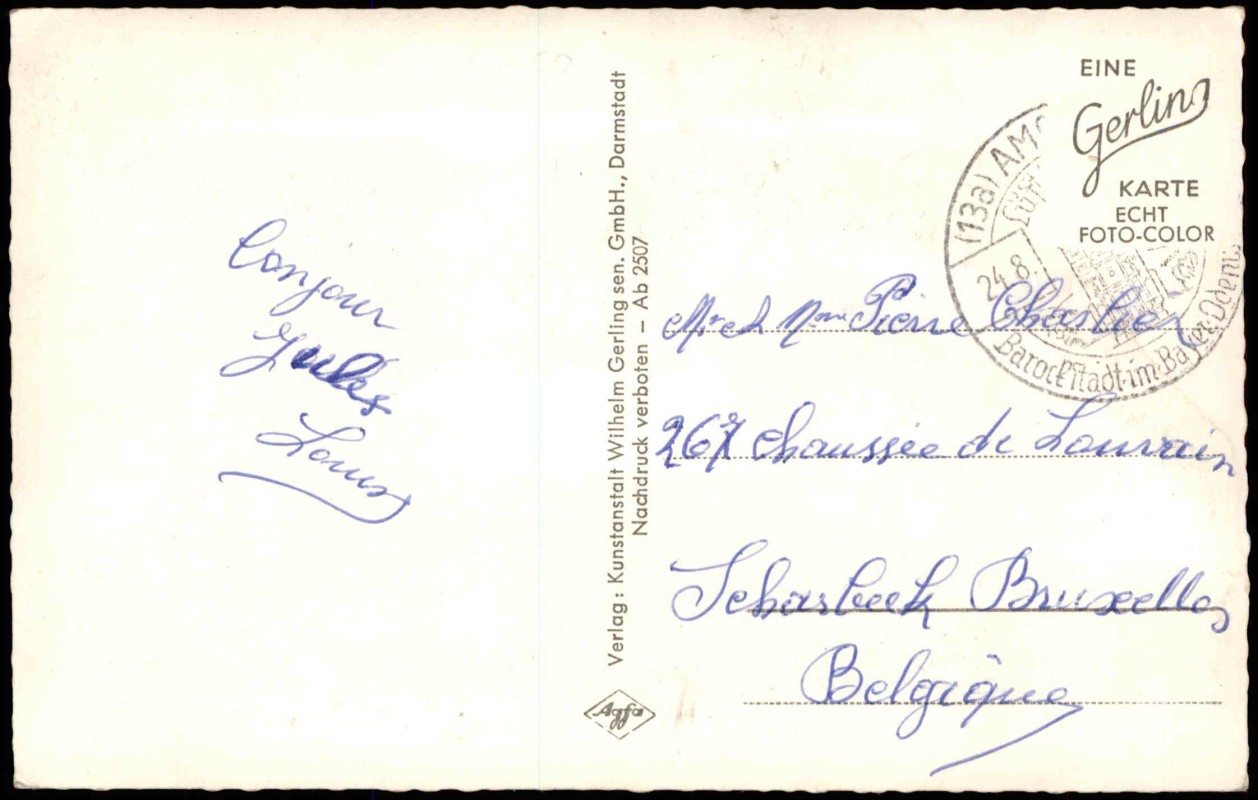 Bonjour
Jules
Louis
Verlag: Kunstanstalt Wilhelm Gerling sen. GmbH., Darmstadt
Nachdruck verboten – Ab 2507
Agfa
EINE
Gerling
KARTE
ECHT
FOTO-COLOR
(13a) AMO
24.8.
Barockstadt·im·Bayer·Odenw
Mr et Mme Pierre
267 chaussée de Louvain
Scharbeek Bruxelles
Belgique